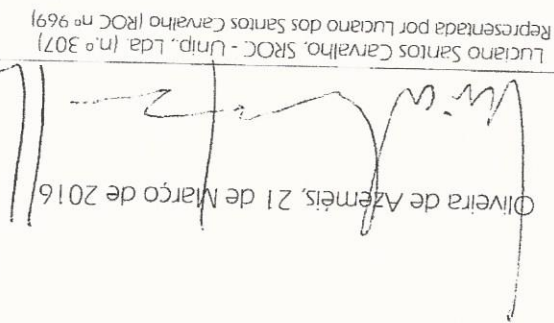 Oliveira de Azeméis, 21 de Março de 2016
Luciano Santos Carvalho, SROC - Unip., Lda. (n.º 307)
Representada por Luciano dos Santos Carvalho (ROC nº 969)